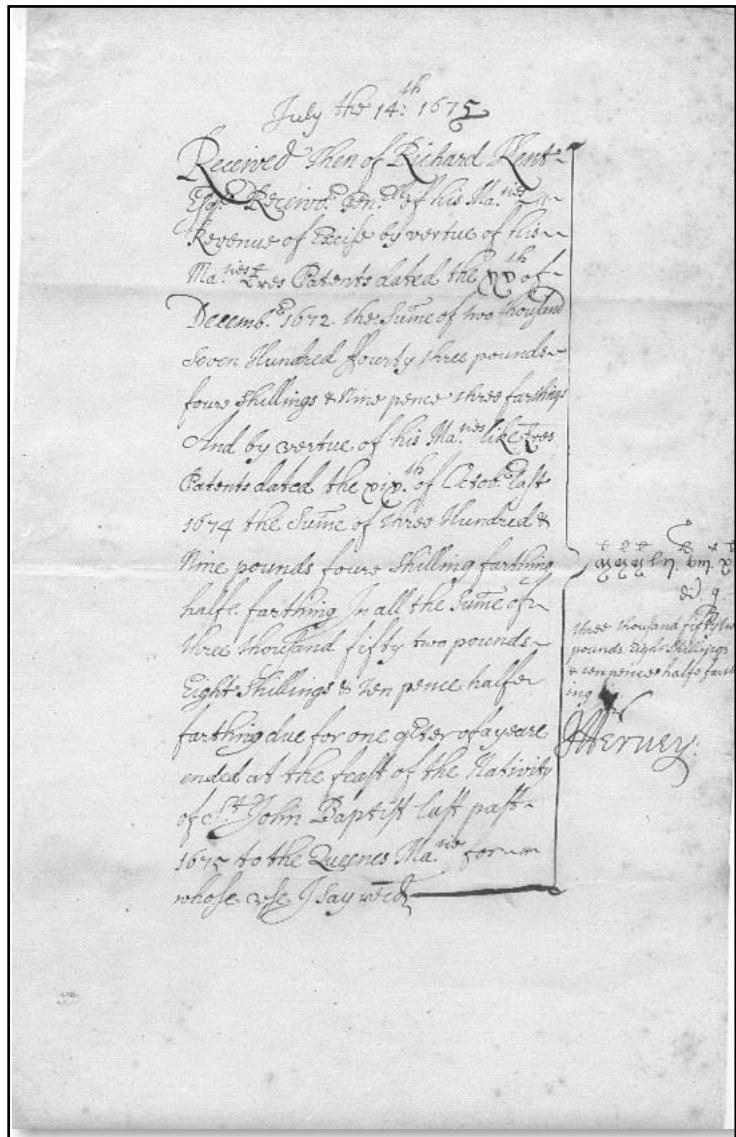 July the 14:th 1675
Received then of Richard Kent
Esqr. Receivor. Genrll of his Ma:ties
Revenue of Excise by vertue of His
Ma:ties Lres Patents dated the xxth of
Decembr. 1672 the Sume of two thousand
Seven Hundred Fourty three pounds
foure Shillings & Nine pence three farthings
And by vertue of his Ma:ties like Lres
Patents dated the xixth. of Octobr last
1674 the Sume of three Hundred &
Nine pounds foure Shilling farthing
halfe farthing In all the Sume of
three thousand fifty two pounds
Eight Shillings & ten pence halfe
farthing due for one qter of a yeare
ended at the feast of the Nativity
of St. John Baptist last past
1675 to the Queenes Ma:tie for
whose use I say recd
three thousand fifty two
pounds Eight Shillings
& ten pence halfe farth
ing
J Hervey: